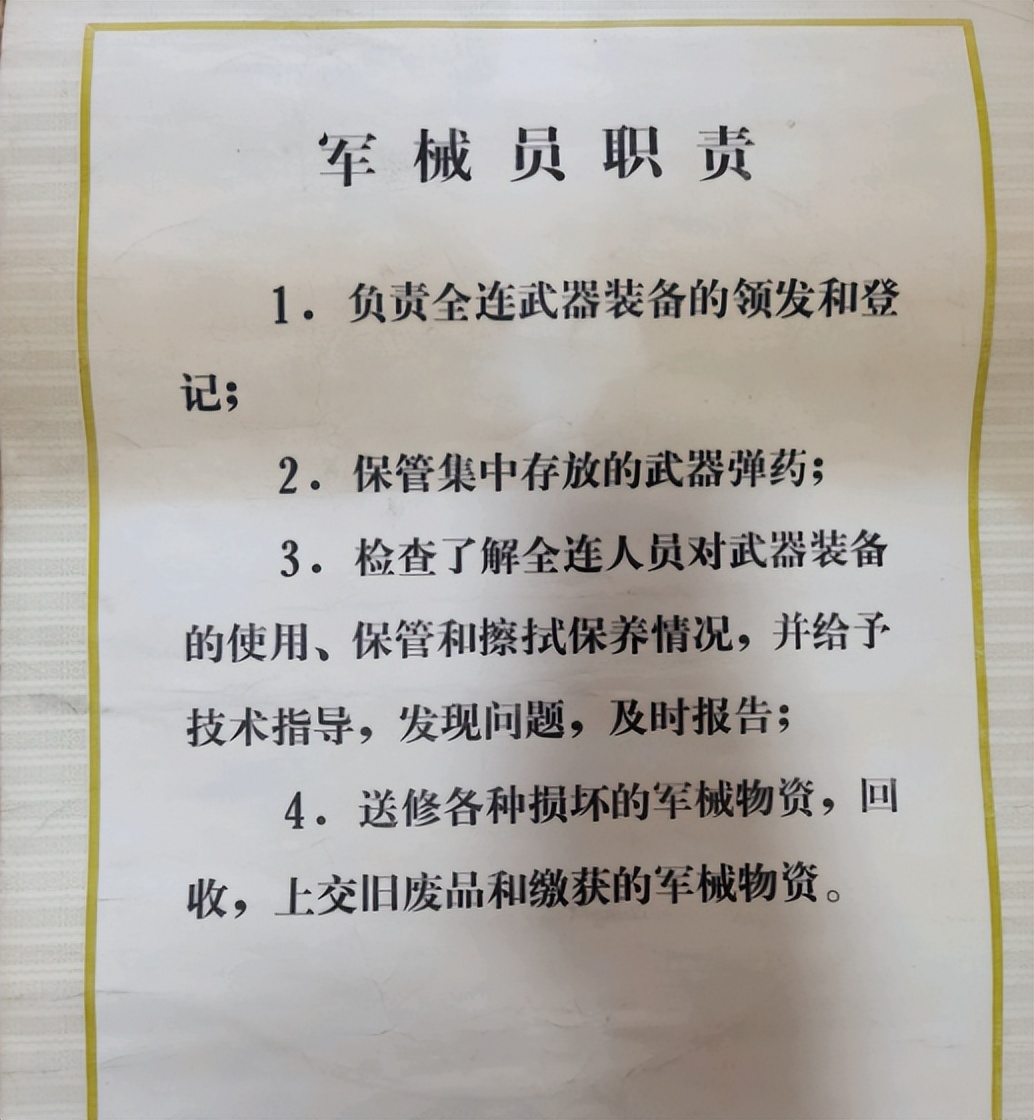 军械员职责
1. 负责全连武器装备的领发和登
记；
2. 保管集中存放的武器弹药；
3. 检查了解全连人员对武器装备
的使用、保管和擦拭保养情况，并给予
技术指导，发现问题，及时报告；
4. 送修各种损坏的军械物资，回
收，上交旧废品和缴获的军械物资。